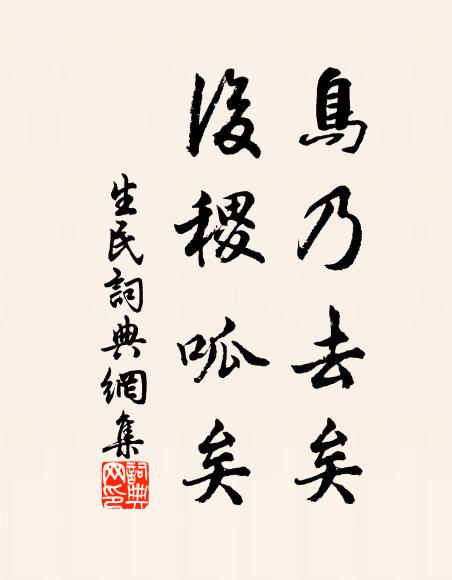 鳥乃去矣
後稷呱矣
生民詞典網集
詞典网印